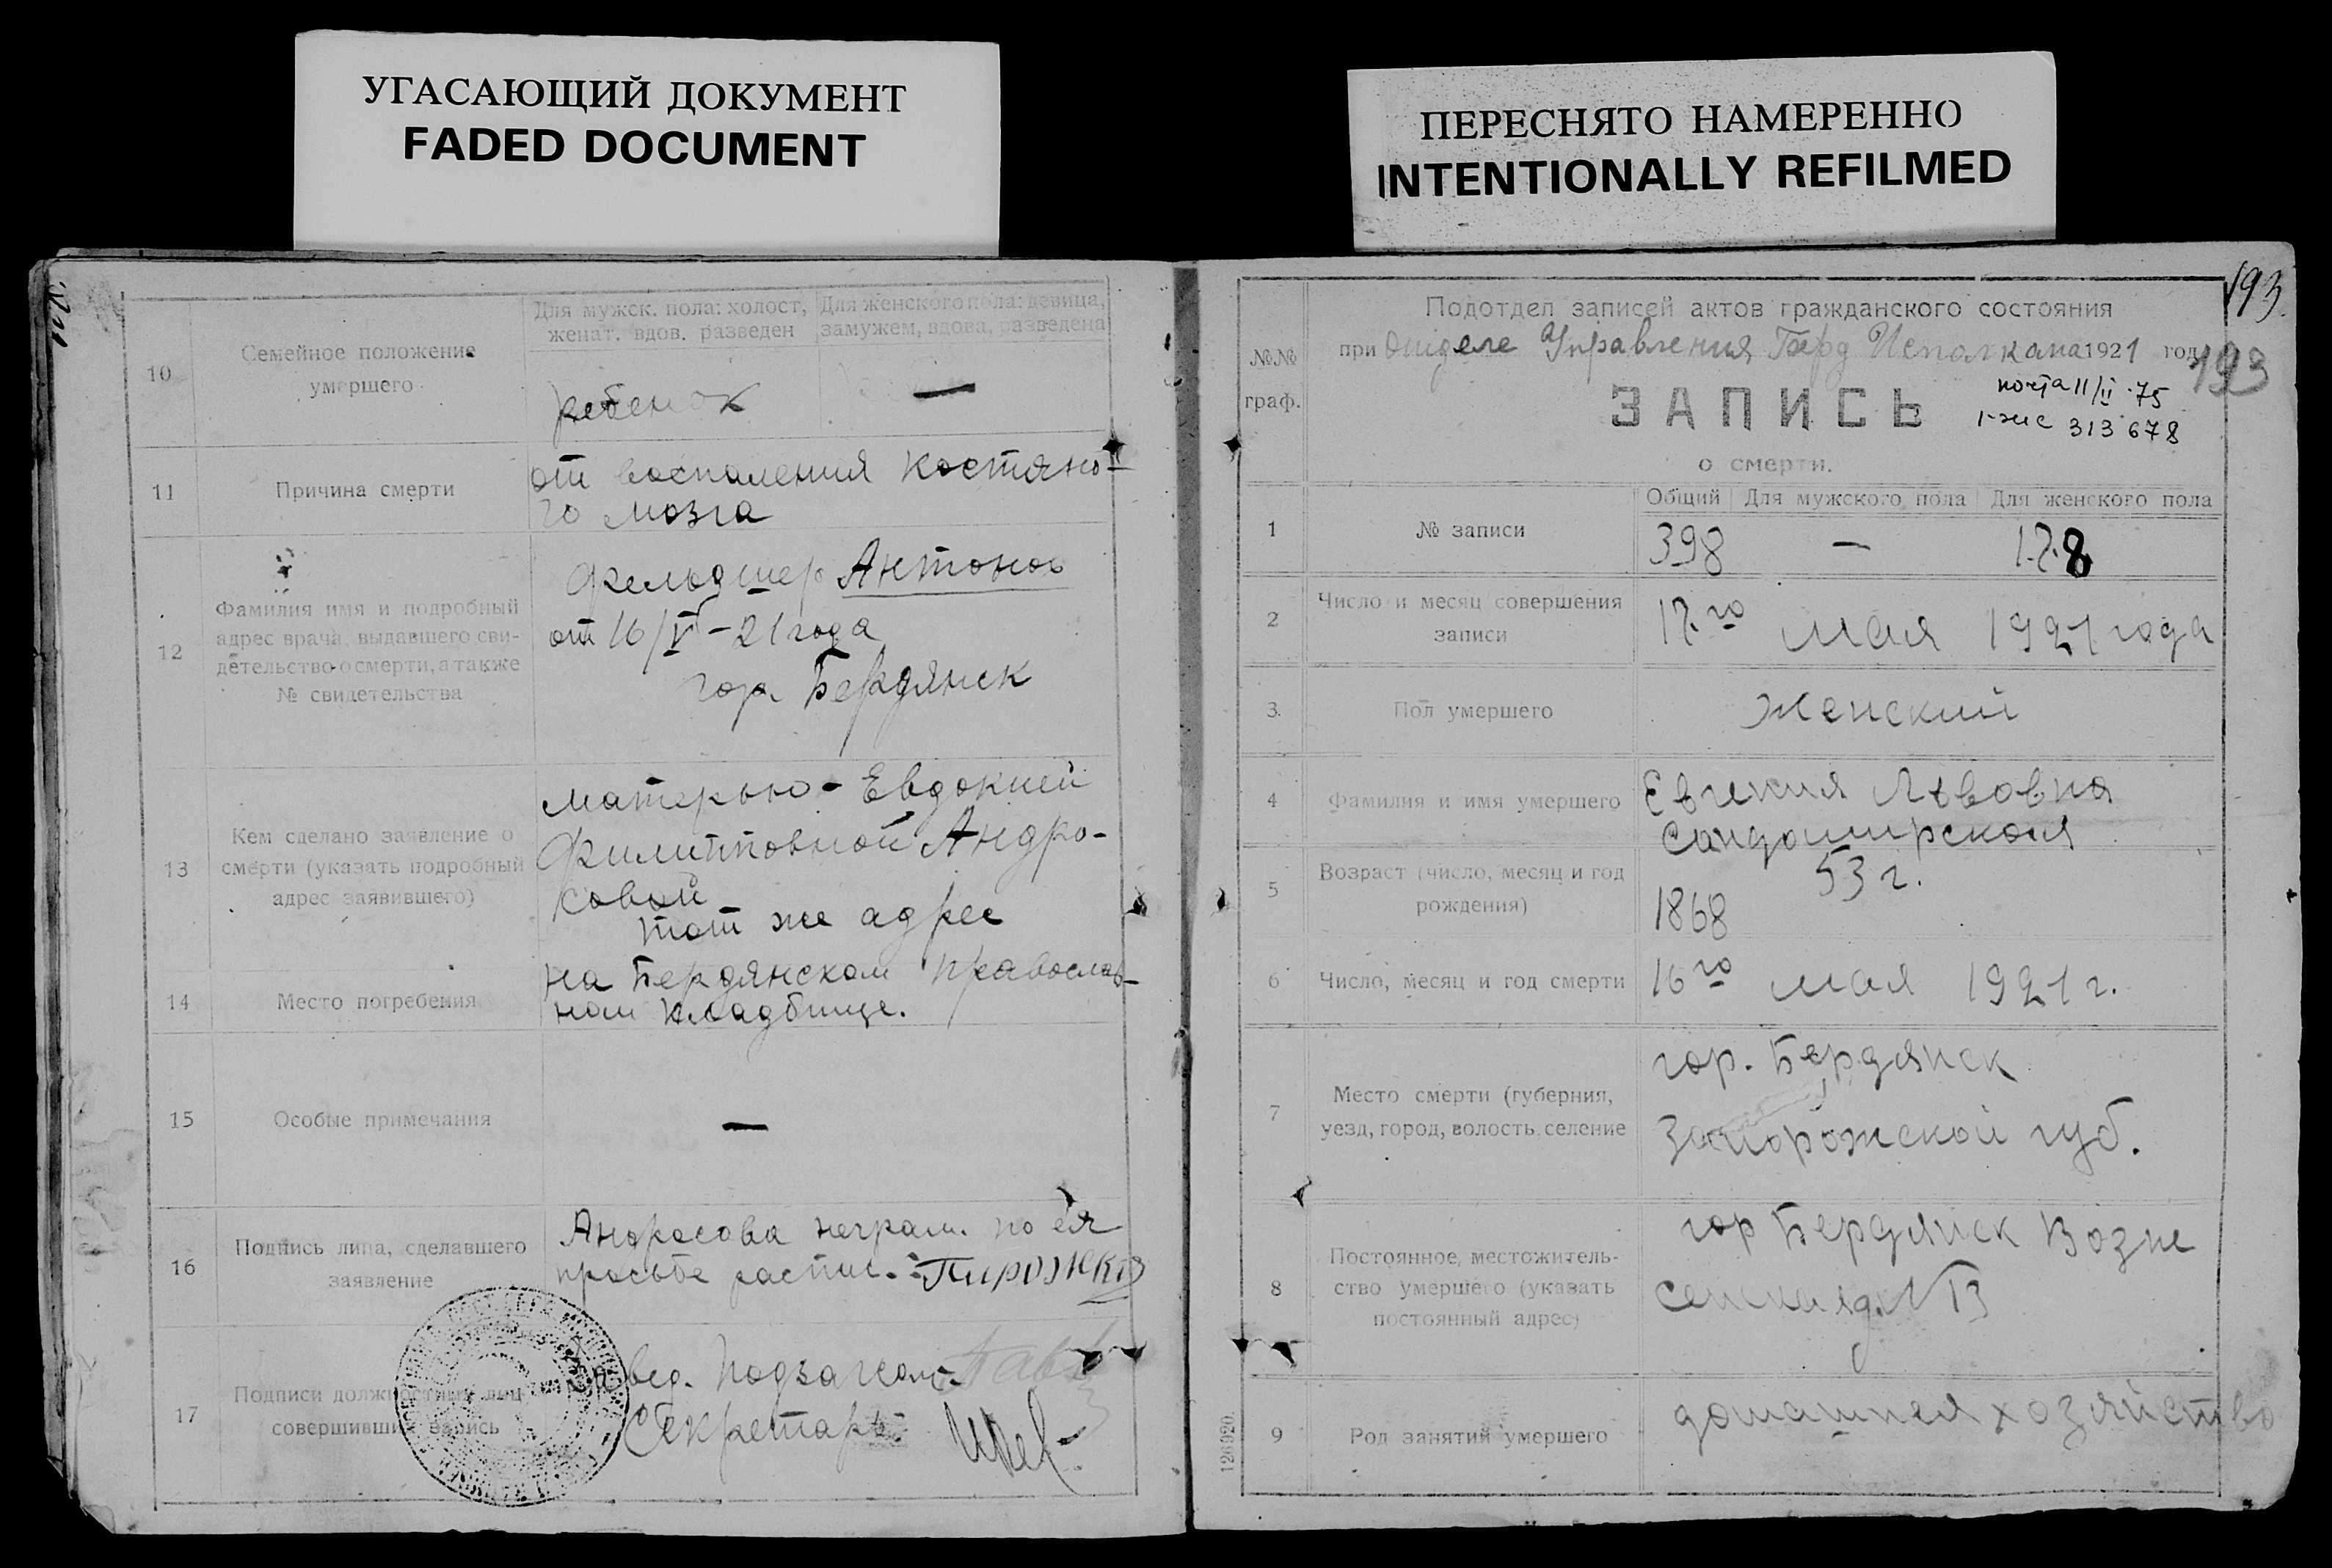 УГАСАЮЩИЙ ДОКУМЕНТ
FADED DOCUMENT
ПЕРЕСНЯТО НАМЕРЕННО
INTENTIONALLY REFILMED
10
Семейное положение
умершего
Для мужск. пола: холост,
женат, вдов. разведен
Для женского пола: девица,
замужем, вдова, разведена
ребенок
—
11
Причина смерти
от воспаления костяно-
го мозга
12
Фамилия имя и подробный
адрес врача, выдавшего сви-
детельство о смерти, а также
№ свидетельства
Фельдшер Антонов
от 16/V – 21 года
гор Бердянск
13
Кем сделано заявление о
смерти (указать подробный
адрес заявившего)
матерью - Евдокией
Филипповной Андро-
совой
тот же адрес
14
Место погребения
на Бердянском православ-
ном кладбище.
15
Особые примечания
—
16
Подпись лица, сделавшего
заявление
Андросова неграм. по ея
просьбе распис.
17
Подписи должностных лиц
совершивших запись
Завед.
Секретарь:
193
№№
граф.
Подотдел записей актов гражданского состояния
при Отделе Управления Берд Исполкома 1921 год
193
ЗАПИСЬ
о смерти.
почта 11/II 75
313678
1
№ записи
Общий
Для мужского пола
Для женского пола
398
—
178
2
Число и месяц совершения
записи
17го мая 1921 года
3
Пол умершего
Женский
4
Фамилия и имя умершего
Евгения Львовна
Сандомирская
5
Возраст (число, месяц и год
рождения)
53 г.
1868
6
Число, месяц и год смерти
16го мая 1921 г.
7
Место смерти (губерния,
уезд, город, волость, селение
гор. Бердянск
Запорожской губ.
8
Постоянное местожитель-
ство умершего (указать
постоянный адрес)
гор Бердянск Возне
сенская
9
Род занятий умершего
домашнея хозяйство
126920.